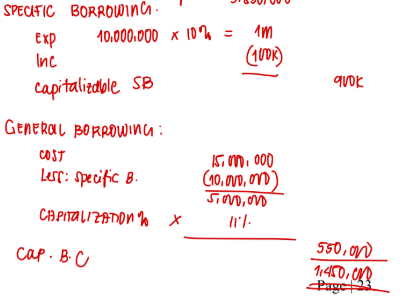 SPECIFIC BORROWING.
Exp 10,000,000 × 10% = 1m
Inc (100K)
capitalizable SB 900K
GENERAL BORROWING:
COST 15,000,000
Less: specific B. (10,000,000)
5,000,000
CAPITALIZATION % × 11%
550,000
Cap. B.C 1,450,000
Page | 23